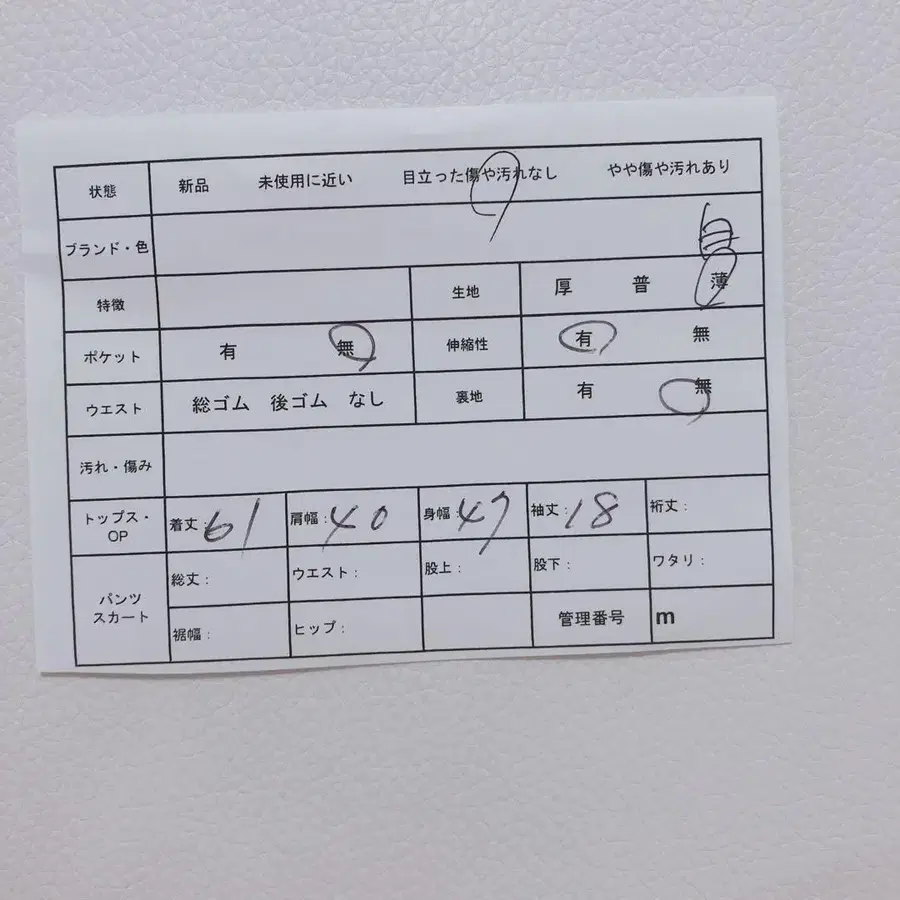 状態 新品 未使用に近い 目立った傷や汚れなし やや傷や汚れあり
ブランド・色
特徴 生地 厚 普 薄
ポケット 有 無 伸縮性 有 無
ウエスト 総ゴム 後ゴム なし 裏地 有 無
汚れ・傷み
トップス・OP 着丈:61 肩幅:40 身幅:47 袖丈:18 裄丈:
パンツ スカート 総丈: ウエスト: 股上: 股下: ワタリ:
裾幅: ヒップ: 管理番号 m